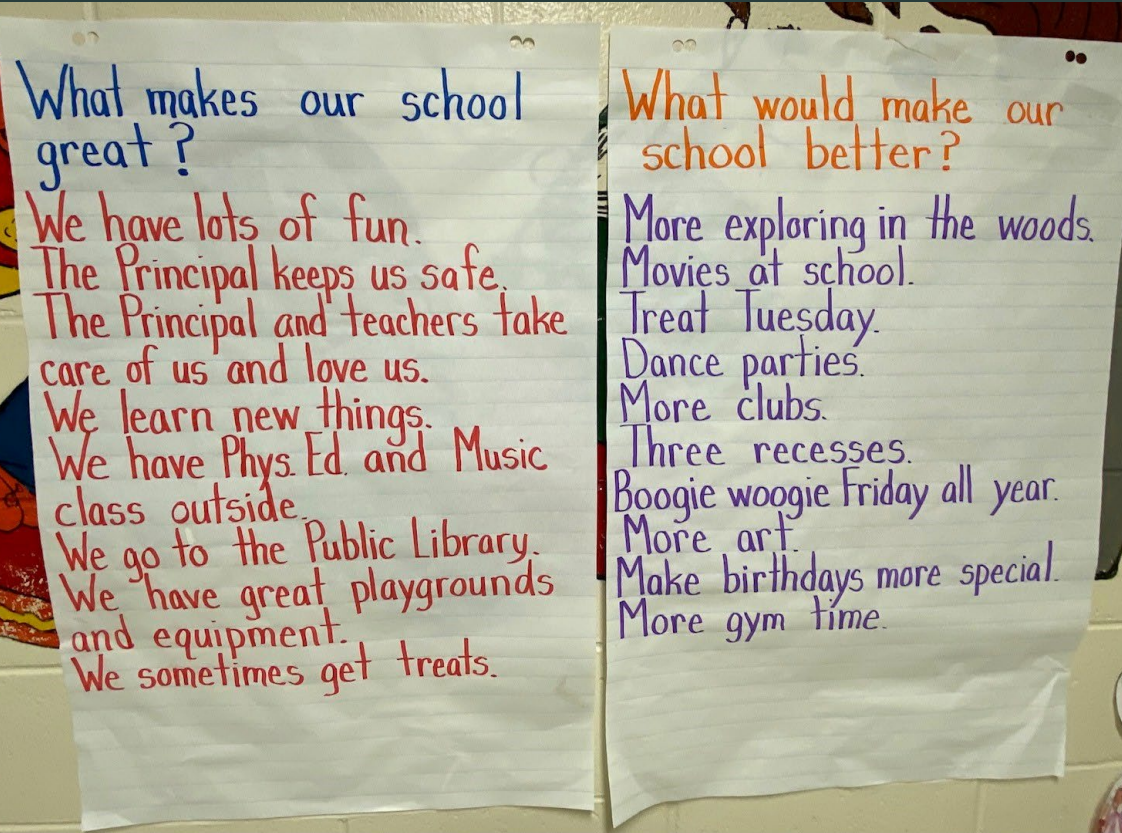 What makes our school
great?
We have lots of fun.
The Principal keeps us safe.
The Principal and teachers take
care of us and love us.
We learn new things.
We have Phys. Ed. and Music
class outside.
We go to the Public Library.
We have great playgrounds
and equipment.
We sometimes get treats.
What would make our
school better?
More exploring in the woods.
Movies at school.
Treat Tuesday.
Dance parties.
More clubs.
Three recesses.
Boogie woogie Friday all year.
More art.
Make birthdays more special.
More gym time.